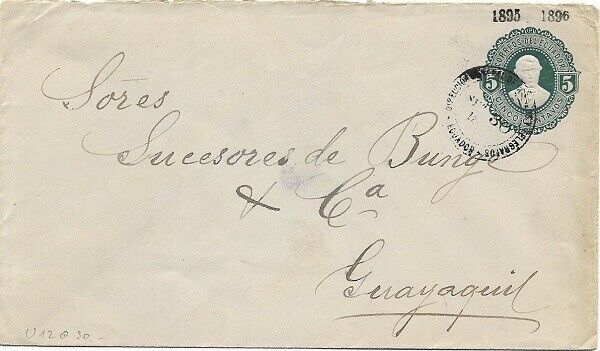 1895 1896
CORREOS DEL ECUADOR
5 5
CINCO CENTAVOS
DIRECCION
TELEGRAFOS
ECUADOR
Sores
Sucesores de Bunge
& Ca
Guayaquil
U12 @ 30.-